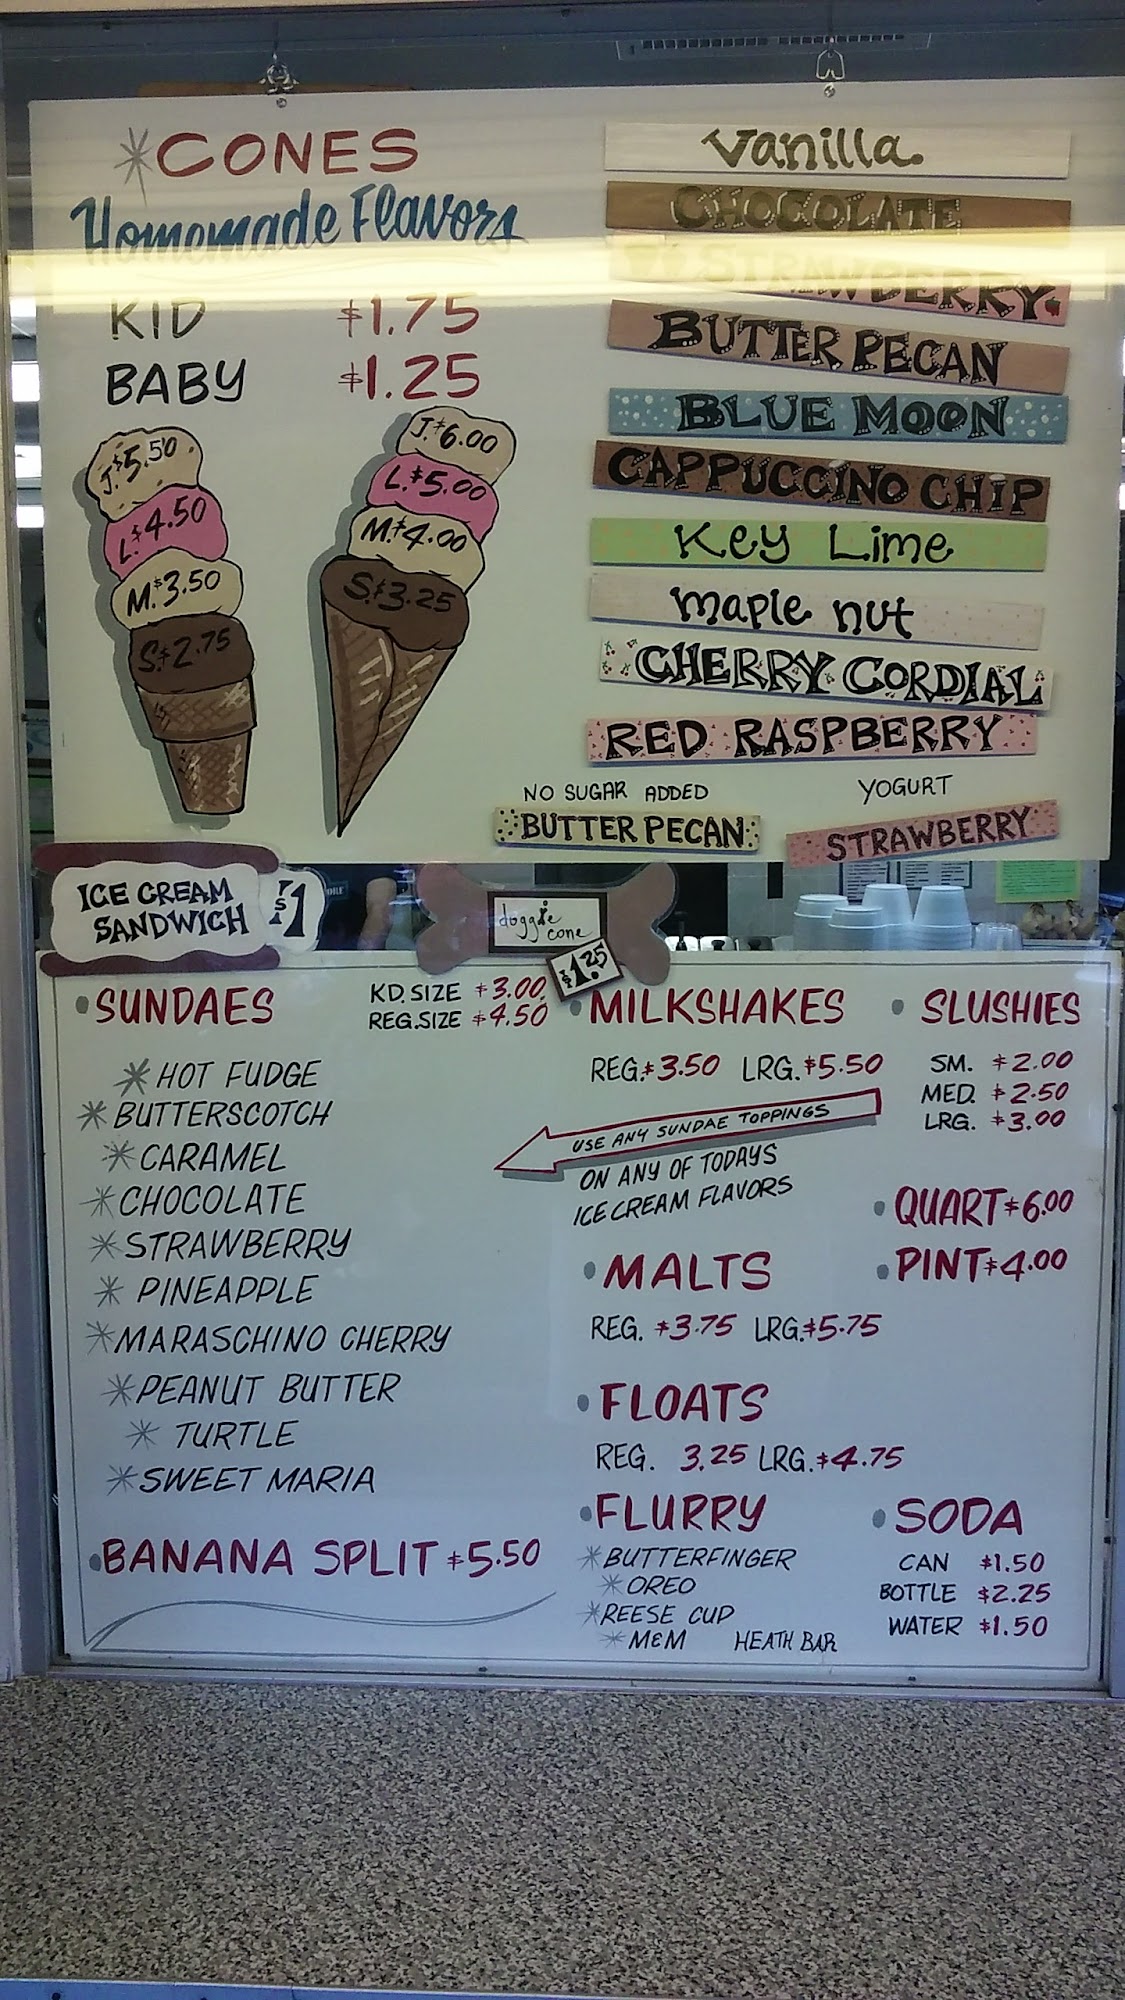 *CONES
Homemade Flavors
KID $1.75
BABY $1.25
J.$5.50
L.$4.50
M.$3.50
S.$2.75
J.$6.00
L.$5.00
M.$4.00
S.$3.25
Vanilla
CHOCOLATE
STRAWBERRY
BUTTER PECAN
BLUE MOON
CAPPUCCINO CHIP
Key Lime
maple nut
CHERRY CORDIAL
RED RASPBERRY
NO SUGAR ADDED
BUTTER PECAN
YOGURT
STRAWBERRY
ICE CREAM
SANDWICH
$1
doggie
cone
$1.25
•SUNDAES
KD. SIZE $3.00
REG. SIZE $4.50
*HOT FUDGE
*BUTTERSCOTCH
*CARAMEL
*CHOCOLATE
*STRAWBERRY
*PINEAPPLE
*MARASCHINO CHERRY
*PEANUT BUTTER
*TURTLE
*SWEET MARIA
•BANANA SPLIT $5.50
•MILKSHAKES
REG.$3.50 LRG.$5.50
USE ANY SUNDAE TOPPINGS
ON ANY OF TODAYS
ICE CREAM FLAVORS
•MALTS
REG. $3.75 LRG.$5.75
•FLOATS
REG. 3.25 LRG.$4.75
•FLURRY
*BUTTERFINGER
*OREO
*REESE CUP
*M&M HEATH BAR
•SLUSHIES
SM. $2.00
MED. $2.50
LRG. $3.00
•QUART $6.00
•PINT $4.00
•SODA
CAN $1.50
BOTTLE $2.25
WATER $1.50